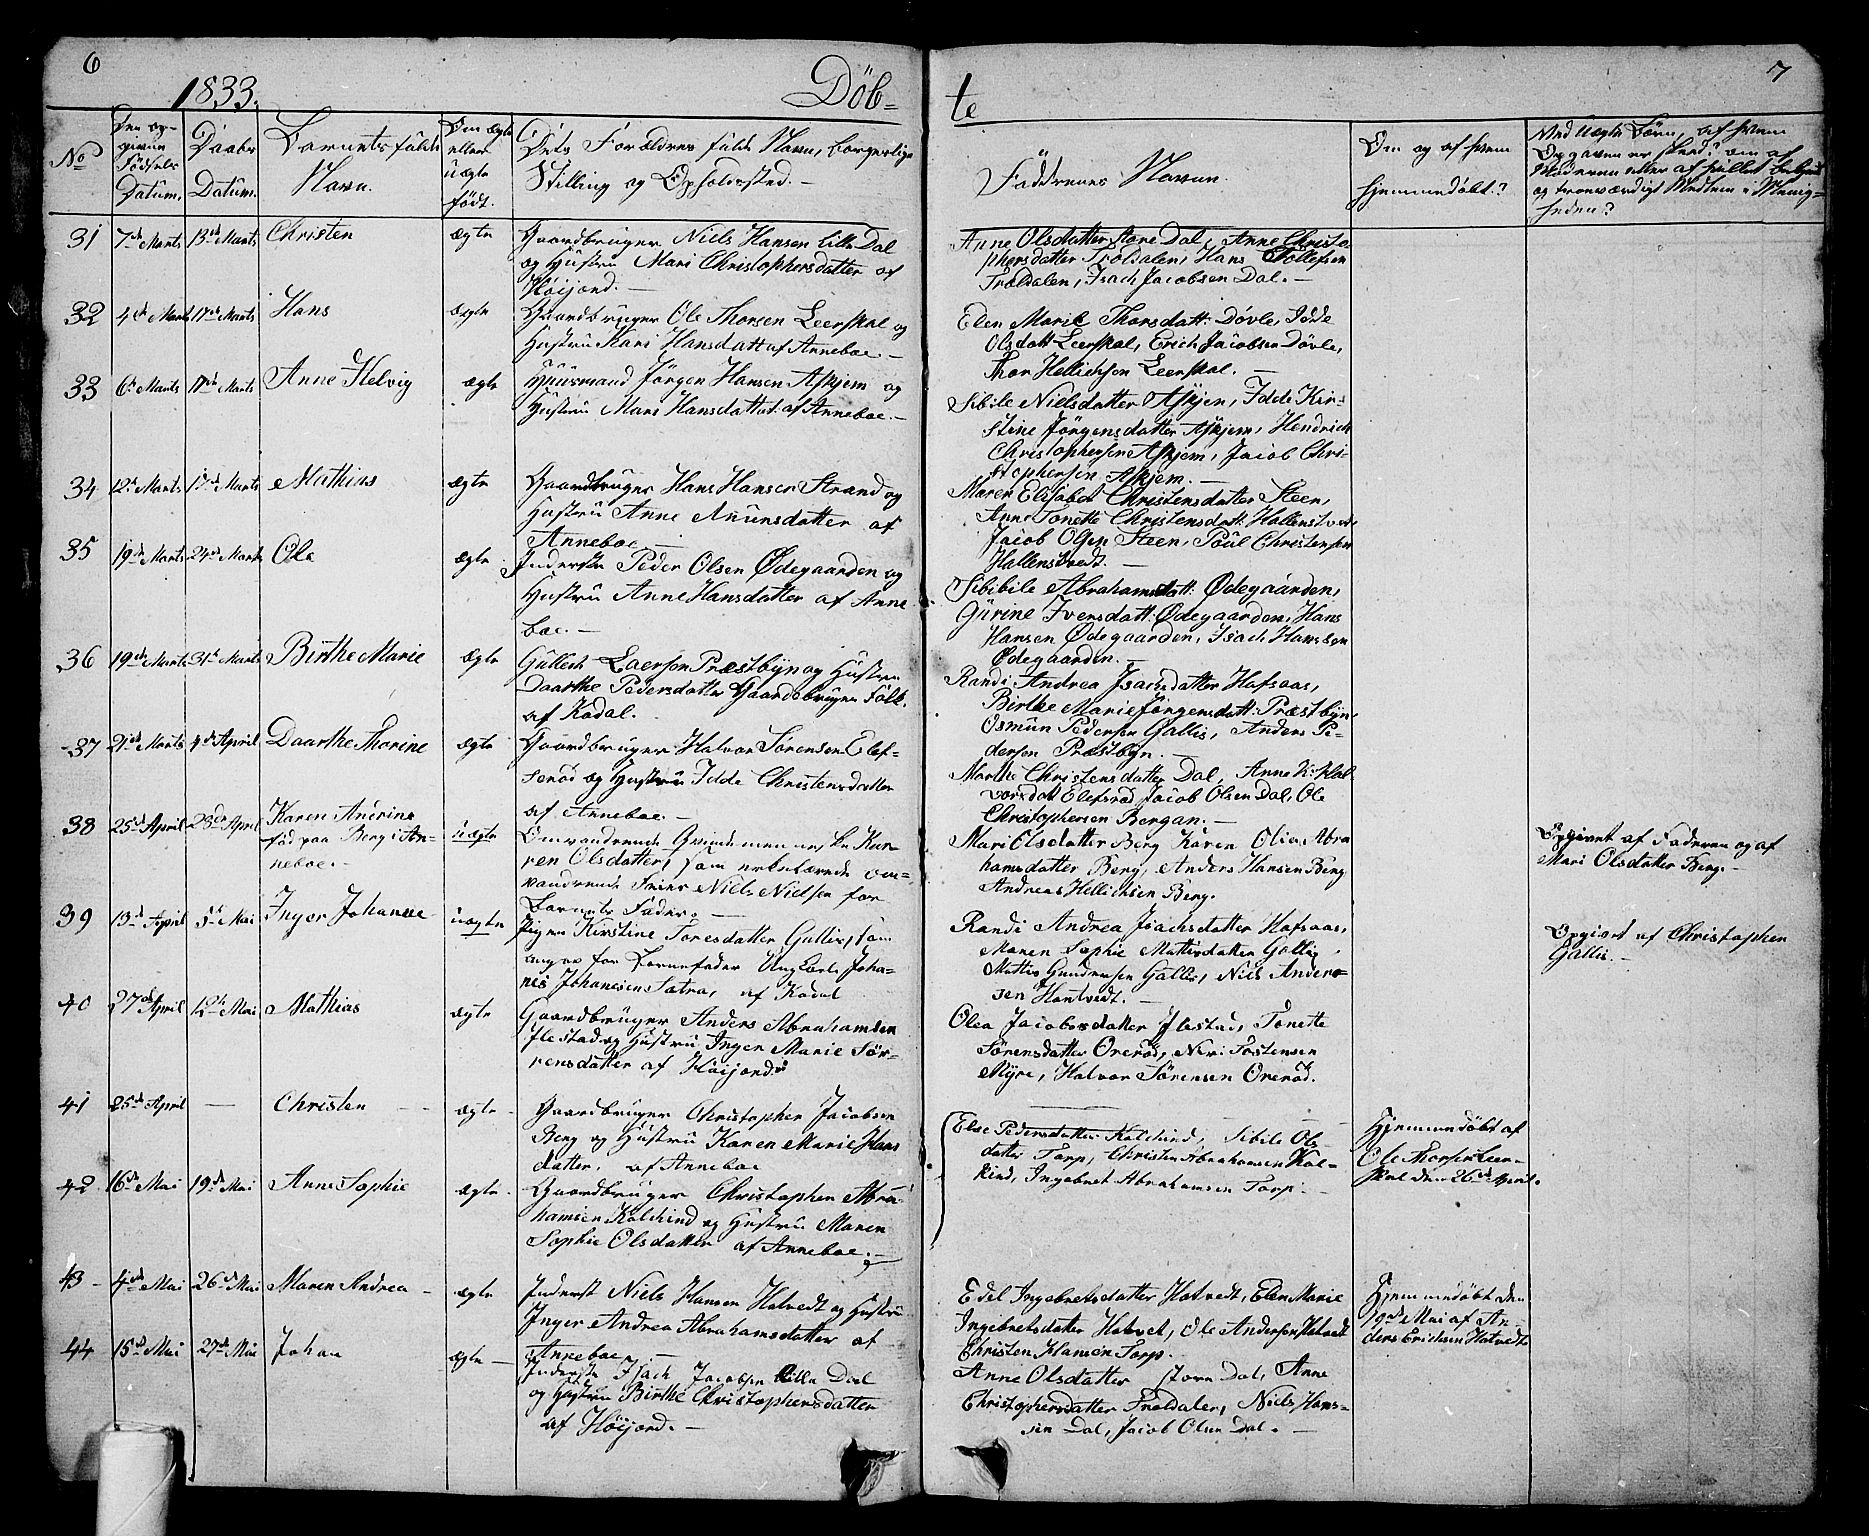 6
1833.
Döb-
te
7
No
Den opgivne Födsels Datum.
Daabs Datum.
Barnets fulde Navn.
Om ægte eller uægte födt.
Dets Forældres fulde Navn, borgerlige Stilling og Opholdssted.-
Faddrenes Navne.
Om og af hvem hjemmedöbt?
Med uægte Börn, af hvem Opgaven er skeed? om af
og troværdigt Medlem i Menigheden?
31 7de Marts 13de Marts Christen ægte
Gaardbruger Niels Hansen Lille Dal
og Hustru Mari Christophersdatter af
Höijord.-
Anne Olsdatter store Dal, Anne Christo-
phersdatter Troldalen, Hans Tollefsen
Troldalen, Isach Jacobsen Dal.-
32 4de Marts 17de Marts Hans ægte
Gaardbruger Ole Thorsen Leerskal og
Hustru Kari Hansdatt af Anneboe.-
Elen Marie Thorsdatt: Døvle, Idde
Olsdatt Leerskal, Erich Jacobsen Døvle,
Thor Hellichsen Leerskal.-
33 6te Marts 17de Marts Anne Helvig ægte
Huusmand Jörgen Hansen Askjem og
Hustru Mari Hansdatter af Anneboe.-
Sibile Nielsdatter Askjem, Idde Kir-
stine Jörgensdatter Askjem, Hendrich
Christophersen Askjem, Jacob Chri-
stophersen Askjem.-
34 12te Marts 17de Marts Mathias ægte
Gaardbruger Hans Hansen Strand og
Hustru Anne Auunsdatter af
Anneboe.-
Maren Elisabet Christensdatter Steen,
Anne Tonette Christensdatt: Hallenstvedt
Jacob Olsen Steen, Poul Christensen
Hallenstvedt.-
35 19de Marts 24de Marts Ole ægte
Inderste Peder Olsen Ødegaarden og
Hustru Anne Hansdatter af Anne
boe.-
Sibibile Abrahamsdatt: Ødegaarden,
Gurine Iversdatt: Ødegaarden, Hans
Hansen Ødegaarden, Isach Hanssen
Ødegaarden.-
36 19de Marts 31te Marts Birthe Marie ægte
Gullich Laersen Præstbyn og Hustru
Daarthe Pedersdatter Gaardbruger Folk
af Kodal.
Randi Andrea Isachsdatter Hafsaas,
Birthe Marie Jörgensdatt: Præstbyn,
Osmun Pedersen Gallis, Anders Pe-
dersen Præstbyn.
37 21de Marts 4de April Daarthe Thorine ægte
Gaardbruger Halvor Sörensen Elef-
seröd og Hustru Idde Christensdatter
af Anneboe.-
Marthe Christensdatter Dal, Anne K: Hal
vorsdatt Elefsröd Jacob Olsen Dal, Ole
Christophersen Bergan.-
38 25de April 28de April Karen Andrine
föd paa Berg i An-
neboe.-
uægte
Omvandrende Qvindemenneske Ka-
ren Olsdatter, som udlagde om-
vandrende Niels Nielsen for
Barnets Fader.-
Mari Olsdatter Berg Karen Olia Abra
hamsdatter Berg, Anders Hansen Berg
Andreas Hellichsen Berg.
Opgivet af Faderen og af
Mari Olsdatter Berg.-
39 13de April 5te Mai Inger Johanne uægte
Pigen Kirstine Toresdatter Gallis, som
angav for Barnefader Ungkarl Joha-
nis Johanesen Sætra, af Kodal
Randi Andrea Isachsdatter Hafsaas,
Maren Sophie Mathisdatter Gallis,
Mathis Gundersen Gallis, Niels Ander-
sen Hantvedt.-
Opgivet af Christopher
Gallis.-
40 27de April 12te Mai Mathias ægte
Gaardbruger Anders Abrahamsen
Ilestad og Hustru Inger Marie Sör-
rensdatter af Höijord.
Olea Jacobsdatter Ilestad, Tonette
Sörensdatter Oreröd, Neri Torstensen
Myre, Halvor Sörensen Oreröd.
41 25de April - Christen ægte
Gaardbruger Christopher Jacobsen
Berg og Hustru Karen Marie Hans
datter, af Anneboe
Hjemmedöbt af
Ole Thorsen Leer-
skal den 26de April.
42 16de Mai 19de Mai Anne Sophie ægte
Gaardbruger Christopher Abra
hamsen Kolkind og Hustru Maren
Sophie Olsdatter af Anneboe.-
Else Pedersdatter Kolkind, Sibile Ols
datter Torp, Christen Abrahamsen Kol-
kind, Ingebret Abrahamsen Torp.-
43 4de Mai 26de Mai Maren Andrea ægte
Inderst Niels Hansen Hotvedt og Hustru
Inger Andrea Abrahamsdatter af
Anneboe.-
Edel Ingebretsdatter Hotvedt, Elen Marie
Ingebretsdatter Hotvet, Ole Andersen Hotvedt
Christen Hansen Torp.
Hjemmedöbt den
19de Mai af An-
ders Erichsen Hotvedt
44 15de Mai 27de Mai Johan ægte
Inderste Isach Jacobsen Lille Dal
og Hustru Birthe Christophersdatter
af Höijord.-
Anne Olsdatter store Dal, Anne
Christophersdatter Troldalen, Niels Han-
sen Dal, Jacob Olsen Dal.-